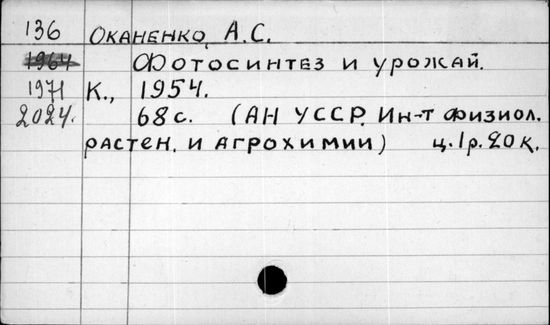 136 Оканенко, А.С.
1964 Фотосинтез и урожай.
1971 К., 1954.
2024. 68 с. (АН УССР. Ин-т физиол.
растен. и агрохимии) ц. 1 р. 20 к.